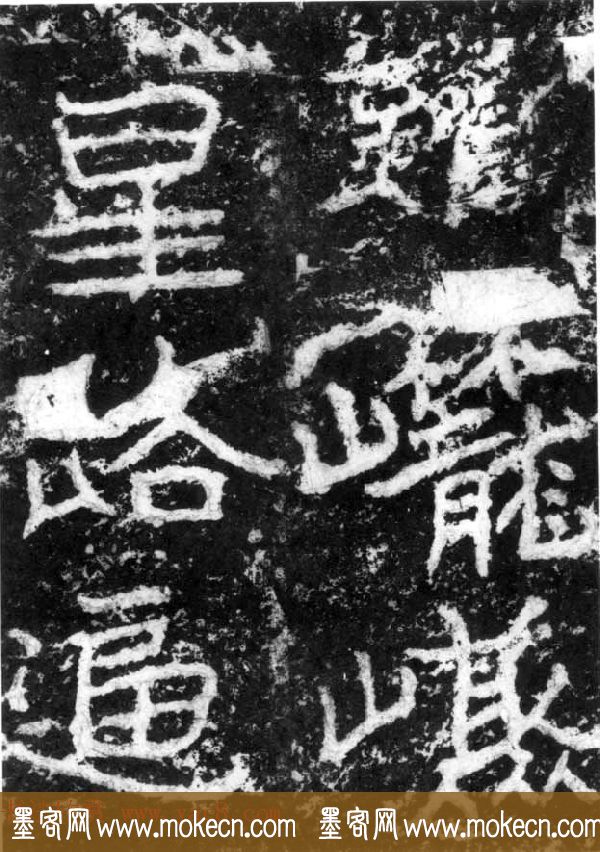 難巃嵷
星路逼
墨客网www.mokecn.com 墨客网www.mokecn.com